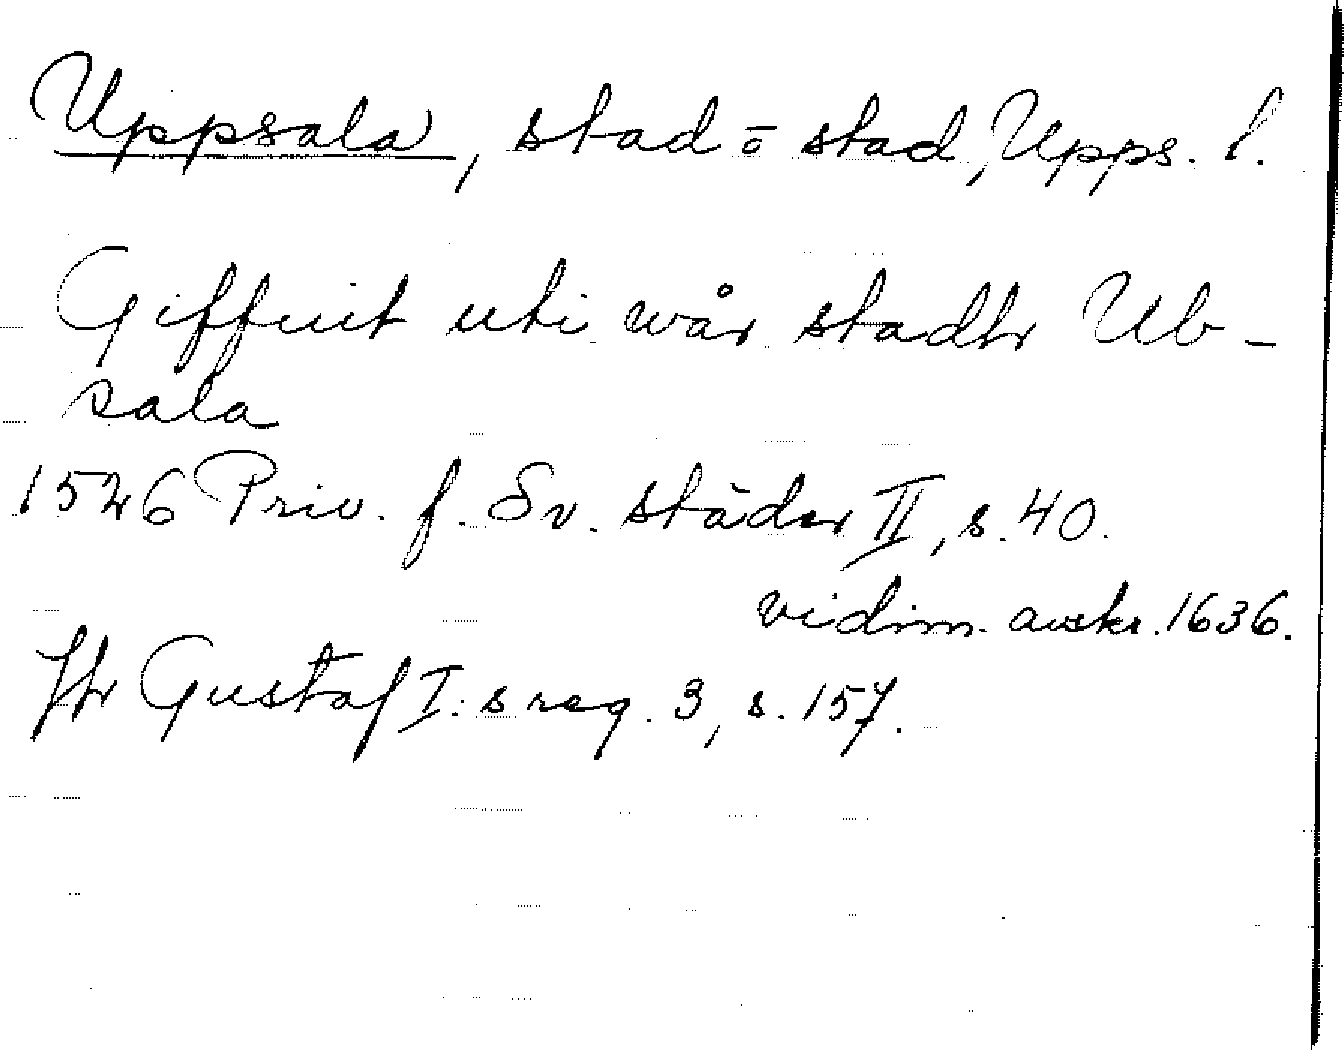 Uppsala, stad ō stad, Upps. l.
Giffuit uti wår stadh Ub-
sala
1526 Priv. f. Sv. städer II, s. 40.
vidim. avskr. 1636.
Jfr Gustaf I:s reg. 3, s. 157.